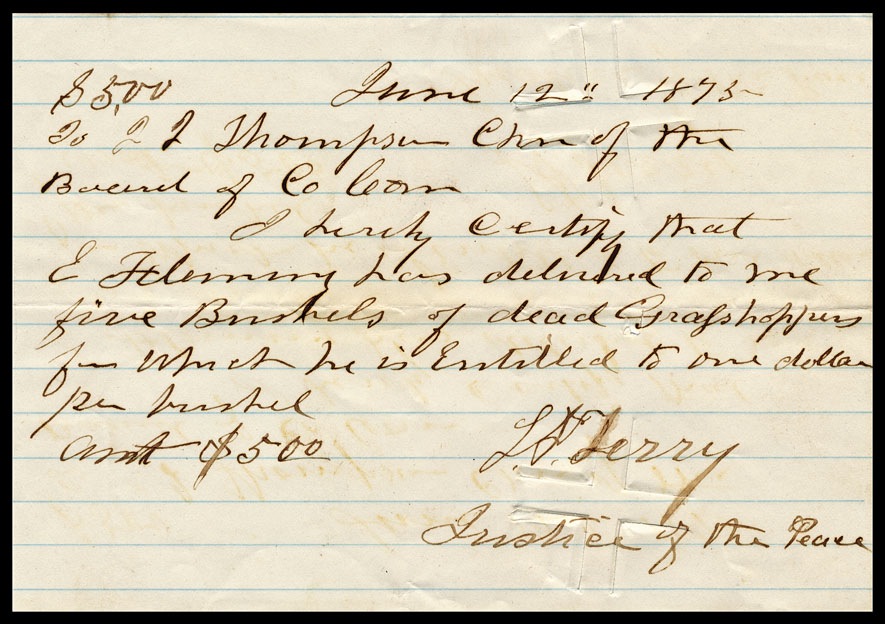 $5,00 June 12" 1875
To J J Thompson Chm of the
Board of Co Com
I herely Certify that
E Flemming has delivired to me
five Bushels of dead Grasshoppers
for which he is Entitled to one dollar
per bushel
Amt $5 00
Terry
Justice of the Peace